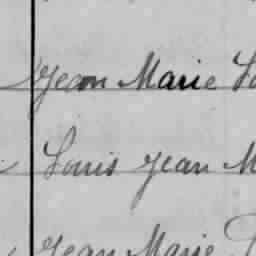 Jean Marie
Louis Jean
Jean Marie